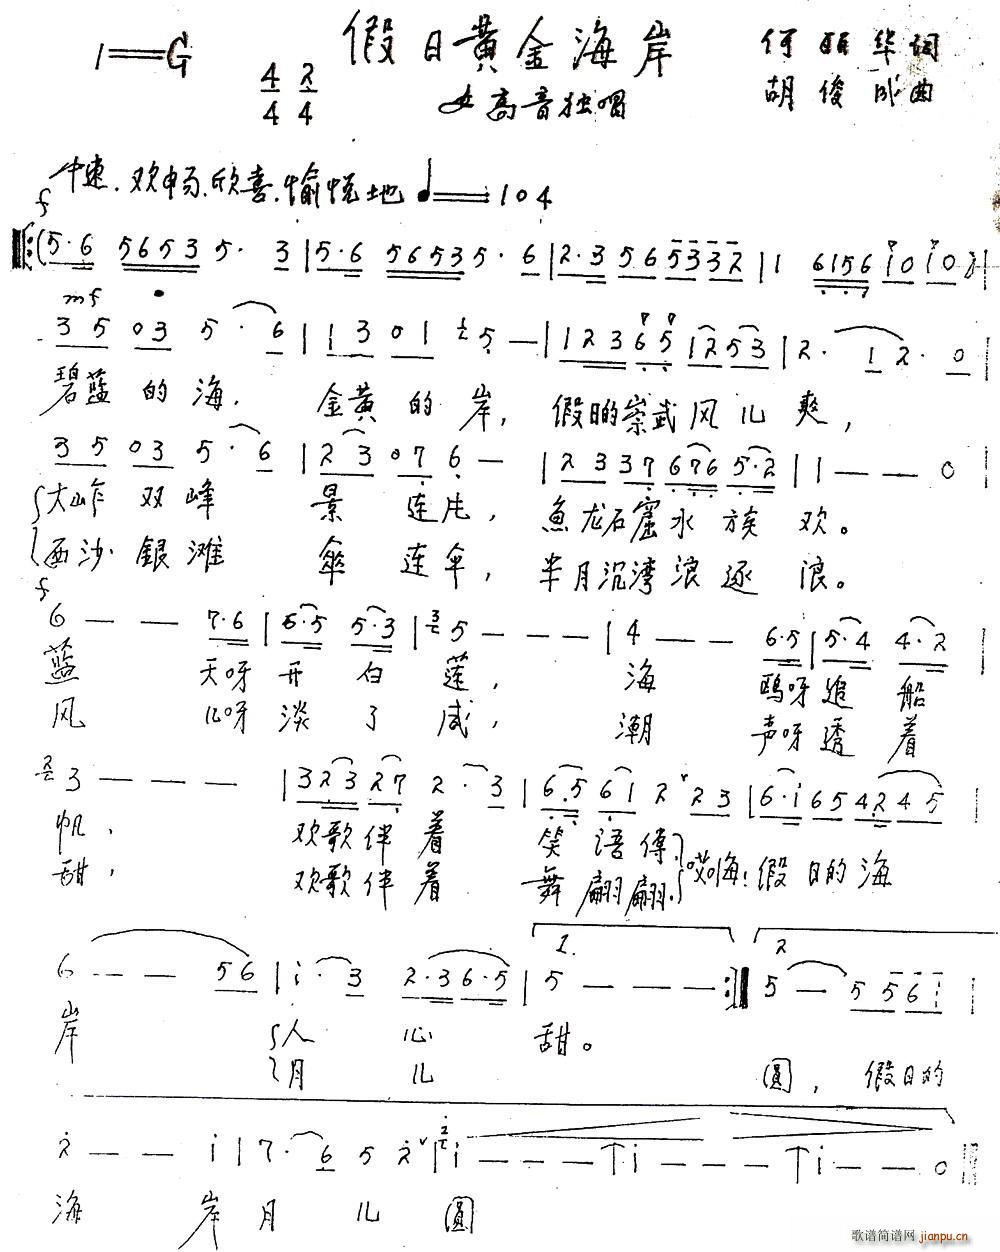 1=G
假日黄金海岸
4/4 2/4
女高音独唱
何丽华词
胡俊成曲
中速.欢畅.欣喜.愉悦地 ♩=104
f
(5·6 5653 5· 3 | 5·6 5653 5· 6 | 2·3 56 5332 | 1 6156 i0 i0 )
mf
3 5 03 5· 6 | 1 3 0 1 5 — | 123 65 12 53 | 2· 1 2· 0 |
碧蓝的海, 金黄的岸, 假日的崇武风儿爽,
3 5 03 5· 6 | 2 3 07 6 — | 2 3 37 676 5·2 | 1 — — 0
大岞双峰 景连片, 魚龙石窟水族欢。
西沙銀滩 傘连伞, 半月沉湾浪逐浪。
f
6 — — 7·6 | 6·5 5·3 | 5 — — — | 4 — — 6·5 | 5·4 4·2 |
蓝 天呀开白莲, 海 鷗呀追船
风 儿呀淡了咸, 潮 声呀透着
3 — — — | 323 27 2· 3 | 6·5 61 2 23 | 6·i 65 42 45 |
帆, 欢歌伴着 笑语傳 哎嗨!假日的海
甜, 欢歌伴着 舞翩翩.
1. 2
6 — — 56 | i· 3 2·3 6·5 | 5 — — — :| 5 — 5 56 i |
岸 人心 甜。
月儿 圓, 假日的
2 — — i | 7· 6 5 2 | i — — — ↑i — — — ↑i — — 0
海 岸月儿圓
歌谱简谱网 jianpu.cn